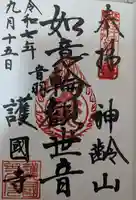 奉拝
神齢山
如意輪観世音
音羽
護國寺
令和七年
九月十五日